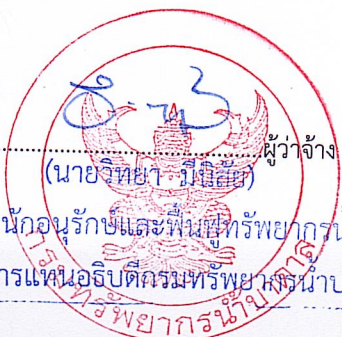 ผู้ว่าจ้าง
(นายวิทยา มีนิสัย)
นักอนุรักษ์และฟื้นฟูทรัพยากรน
การแทนอธิบดีกรมทรัพยากรน้ำบ
กรมทรัพยากรน้ำบาดาล